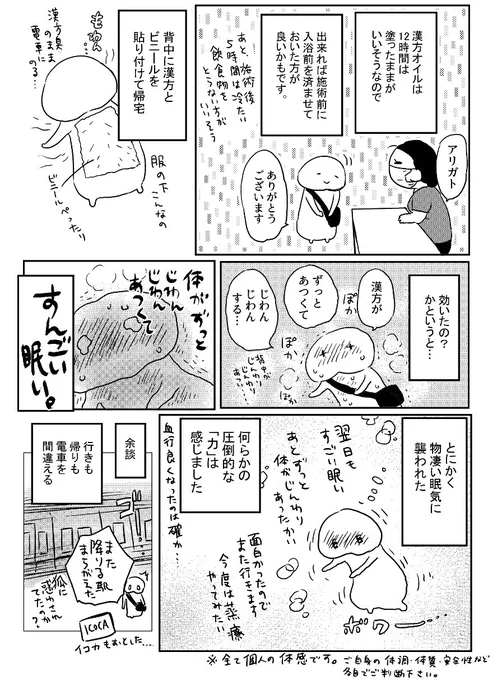 漢方オイルは
12時間は
塗ったままが
いいそうなので
出来れば施術前に
入浴前を済ませて
おいた方が
良いかもです。
あと、施術後
5時間は冷たい
飲食物を
とらない方が
いいそう
アリガト
ありがとう
ございます
背中に漢方と
ビニールを
貼り付けて帰宅
もわん
漢方臭
のまま
電車に
のる…
服の下こんなの
ビニールぺったり
効いたの?
かというと…
漢方が
ずっと
あつくて
じわん
じわん
する…
ぽか
ぽか
背中が
じんわり
あつい…
体がずっと
じわん
じわん
あつくて
すんごい
眠い。
とにかく
物凄い眠気に
襲われた
翌日も
すごい眠い
あとずっと
体がじんわり
あったかい
何らかの
圧倒的な
「力」は
感じました
血行良くなったのは確か…
面白かったので
また行きます
今度は蒸療
やってみたい
ボワー
余談
行きも
帰りも
電車を
間違える
また
降りる駅
まちがえた
狐に
惑わされ
てたのか?
ICOCA
イコカもおとした…
※全て個人の体感です。ご自身の体調・体質・安全性など
各自でご判断下さい。